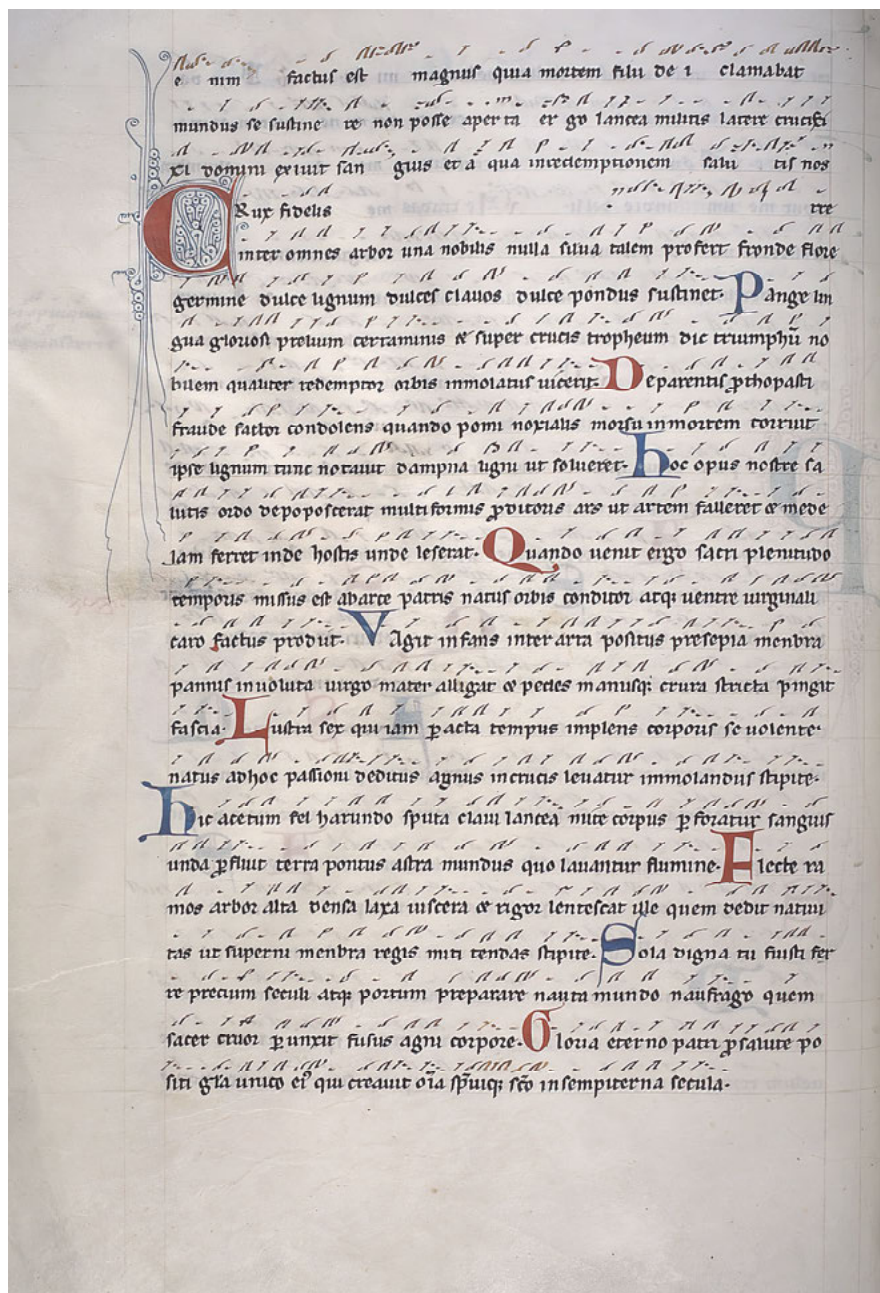 e nim factus est magnus quia mortem filii de i clamabat
mundus se sustine re non posse aper ta er go lancea militis latere crucifi
xi domini exiuit san guis et a qua inredemptionem salu tis nos
CRux fidelis tre
inter omnes arbor una nobilis nulla silua talem profert fronde flore
germine dulce lignum dulces clauos dulce pondus sustinet. Pange lin
gua gloriosi prelium certaminis & super crucis tropheum dic triumphū no
bilem qualiter redemptor orbis inmolatus uicerit. Deparentis ꝓthoplasti
fraude factor condolens quando pomi noxialis morsu inmortem corruit
ipse lignum tunc notauit dampna ligni ut solueret. hoc opus nostre sa
lutis ordo depoposcerat multiformis ꝓditoris ars ut artem falleret & mede
lam ferret inde hostis unde leserat. Quando uenit ergo sacri plenitudo
temporis missus est abarce patris natus orbis conditor atq; uentre uirginali
caro factus prodiit. VAgit infans inter arta positus presepia menbra
pannis inuoluta uirgo mater alligat & pedes manusq; crura stricta pingit
fascia. Lustra sex qui iam ꝑacta tempus implens corporis se uolente.
natus adhoc passioni deditus agnus incrucis leuatur immolandus stipite.
hic acetum fel harundo sputa claui lancea mite corpus ꝑforatur sanguis
unda ꝓfluit terra pontus astra mundus quo lauantur flumine. Flecte ra
mos arbor alta densa laxa uiscera & rigor lentescat ille quem dedit natiui
tas ut superni menbra regis miti tendas stipite. Sola digna tu fuisti fer
re precium seculi atq; portum preparare nauta mundo naufrago quem
sacer cruor ꝑunxit fusus agni corpore. Gloria eterno patri ꝓsalute po
siti gl̄a unico ei' qui creauit oīa sp̄uiq; sc̄o insempiterna secula.